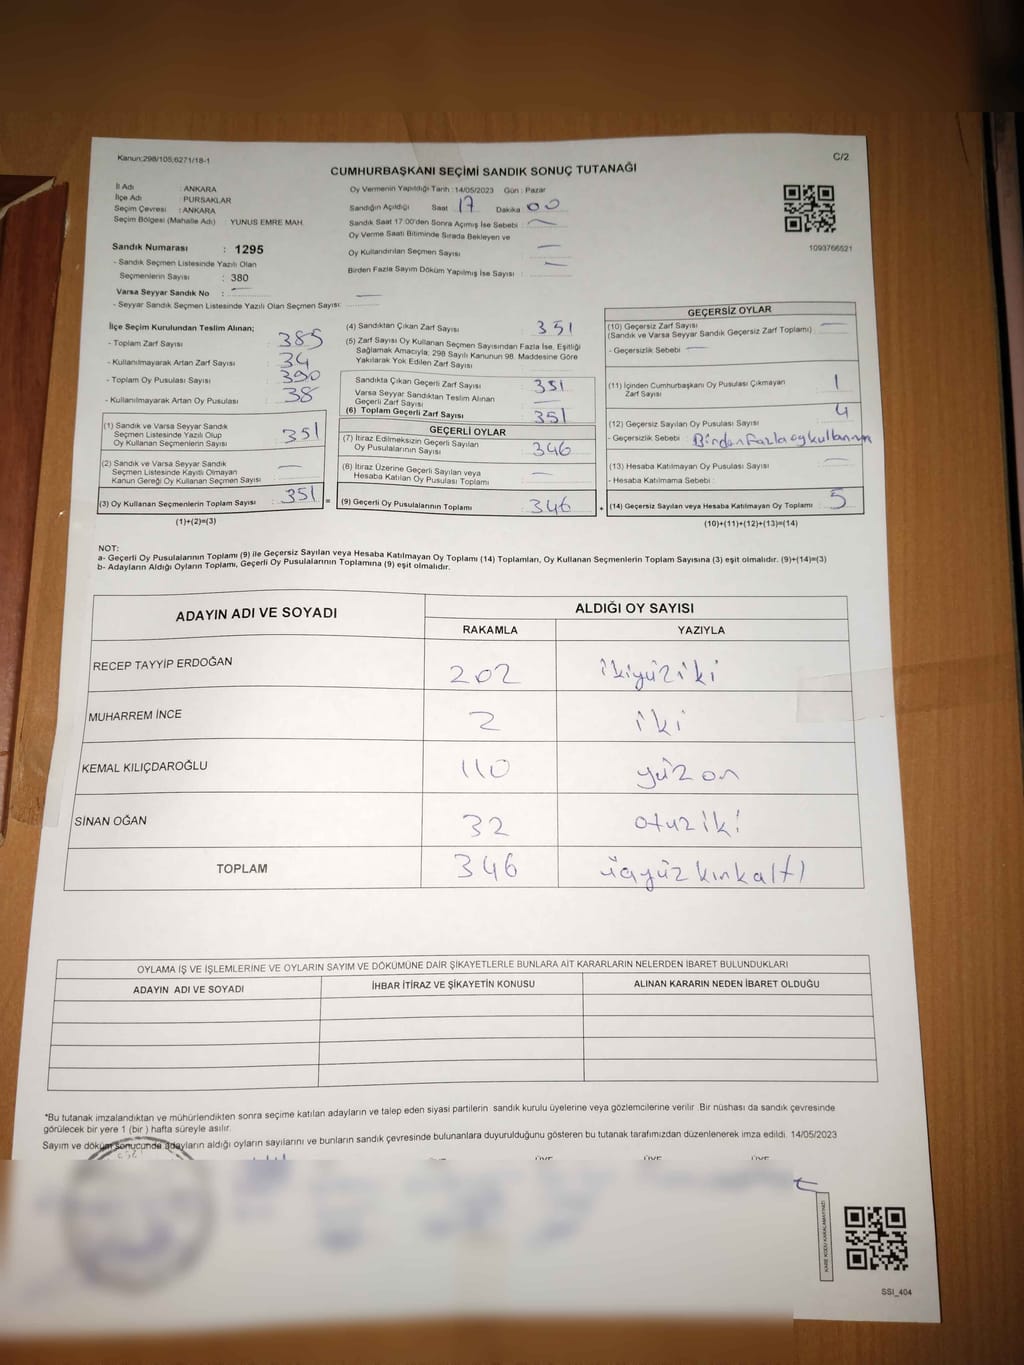 Kanun:298/105,6271/18-1
C/2
CUMHURBAŞKANI SEÇİMİ SANDIK SONUÇ TUTANAĞI
İl Adı : ANKARA
İlçe Adı : PURSAKLAR
Seçim Çevresi : ANKARA
Seçim Bölgesi (Mahalle Adı) : YUNUS EMRE MAH.
Sandık Numarası : 1295
- Sandık Seçmen Listesinde Yazılı Olan
Seçmenlerin Sayısı : 380
Varsa Seyyar Sandık No :
- Seyyar Sandık Seçmen Listesinde Yazılı Olan Seçmen Sayısı:
Oy Vermenin Yapıldığı Tarih :14/05/2023 Gün : Pazar
Sandığın Açıldığı Saat 17 Dakika 00
Sandık Saat 17:00'den Sonra Açmış İse Sebebi :
Oy Verme Saati Bitiminde Sırada Bekleyen ve
Oy Kullandırılan Seçmen Sayısı :
Birden Fazla Sayım Döküm Yapılmış İse Sayısı :
1093766521
İlçe Seçim Kurulundan Teslim Alınan;
- Toplam Zarf Sayısı : 385
- Kullanılmayarak Artan Zarf Sayısı : 34
- Toplam Oy Pusulası Sayısı : 390
- Kullanılmayarak Artan Oy Pusulası : 38
(1) Sandık ve Varsa Seyyar Sandık
Seçmen Listesinde Yazılı Olup
Oy Kullanan Seçmenlerin Sayısı : 351
(2) Sandık ve Varsa Seyyar Sandık
Seçmen Listesinde Kayıtlı Olmayan
Kanun Gereği Oy Kullanan Seçmen Sayısı :
(3) Oy Kullanan Seçmenlerin Toplam Sayısı : 351 =
(1)+(2)=(3)
(4) Sandıktan Çıkan Zarf Sayısı : 351
(5) Zarf Sayısı Oy Kullanan Seçmen Sayısından Fazla İse, Eşitliği
Sağlamak Amacıyla; 298 Sayılı Kanunun 98. Maddesine Göre
Yakılarak Yok Edilen Zarf Sayısı :
Sandıkta Çıkan Geçerli Zarf Sayısı : 351
Varsa Seyyar Sandıktan Teslim Alınan
Geçerli Zarf Sayısı :
(6) Toplam Geçerli Zarf Sayısı : 351
GEÇERLİ OYLAR
(7) İtiraz Edilmeksizin Geçerli Sayılan
Oy Pusulalarının Sayısı : 346
(8) İtiraz Üzerine Geçerli Sayılan veya
Hesaba Katılan Oy Pusulası Toplamı :
(9) Geçerli Oy Pusulalarının Toplamı : 346 +
GEÇERSİZ OYLAR
(10) Geçersiz Zarf Sayısı
(Sandık ve Varsa Seyyar Sandık Geçersiz Zarf Toplamı) :
- Geçersizlik Sebebi :
(11) İçinden Cumhurbaşkanı Oy Pusulası Çıkmayan
Zarf Sayısı : 1
(12) Geçersiz Sayılan Oy Pusulası Sayısı : 4
- Geçersizlik Sebebi : Birden fazla oy kullanımı
(13) Hesaba Katılmayan Oy Pusulası Sayısı :
- Hesaba Katılmama Sebebi :
(14) Geçersiz Sayılan veya Hesaba Katılmayan Oy Toplamı : 5
(10)+(11)+(12)+(13)=(14)
NOT:
a- Geçerli Oy Pusulalarının Toplamı (9) ile Geçersiz Sayılan veya Hesaba Katılmayan Oy Toplamı (14) Toplamları, Oy Kullanan Seçmenlerin Toplam Sayısına (3) eşit olmalıdır. (9)+(14)=(3)
b- Adayların Aldığı Oyların Toplamı, Geçerli Oy Pusulalarının Toplamına (9) eşit olmalıdır.
ADAYIN ADI VE SOYADI
ALDIĞI OY SAYISI
RAKAMLA YAZIYLA
RECEP TAYYİP ERDOĞAN 202 ikiyüziki
MUHARREM İNCE 2 iki
KEMAL KILIÇDAROĞLU 110 yüz on
SİNAN OĞAN 32 otuziki
TOPLAM 346 üçyüzkırkaltı
OYLAMA İŞ VE İŞLEMLERİNE VE OYLARIN SAYIM VE DÖKÜMÜNE DAİR ŞİKAYETLERLE BUNLARA AİT KARARLARIN NELERDEN İBARET BULUNDUKLARI
ADAYIN ADI VE SOYADI İHBAR İTİRAZ VE ŞİKAYETİN KONUSU ALINAN KARARIN NEDEN İBARET OLDUĞU
*Bu tutanak imzalandıktan ve mühürlendikten sonra seçime katılan adayların ve talep eden siyasi partilerin sandık kurulu üyelerine veya gözlemcilerine verilir .Bir nüshası da sandık çevresinde
görülecek bir yere 1 (bir ) hafta süreyle asılır.
Sayım ve döküm sonucunda adayların aldığı oyların sayılarını ve bunların sandık çevresinde bulunanlara duyurulduğunu gösteren bu tutanak tarafımızdan düzenlenerek imza edildi. 14/05/2023
ÜYE ÜYE ÜYE
KARE KODU KARALAMAYINIZ!
SSI_404